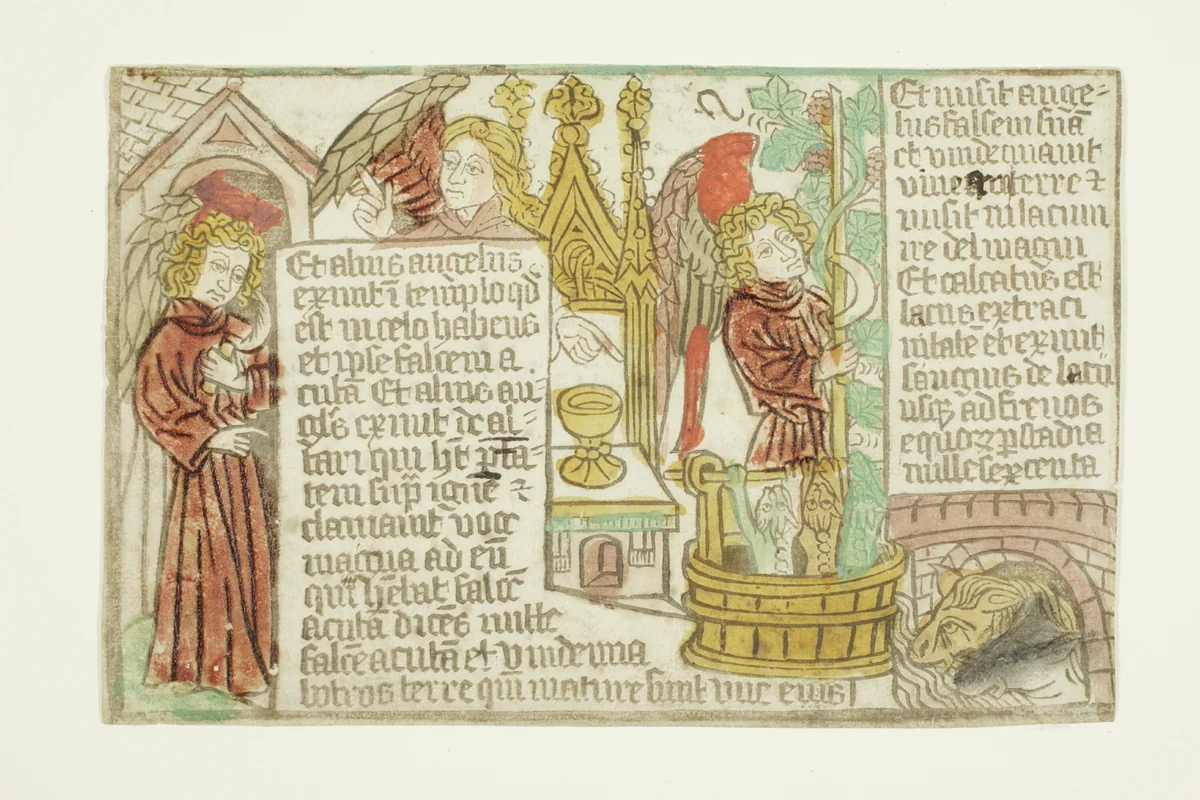 Et alius angelus
exivit ī templo qd̄
est in celo habens
et ipse falcem a
cutā Et alius an-
gls̄ exivit de al-
tari qui hr̄t p̄ta-
tem sup̄ ignē ⁊
clamavit voce
magna ad eū
qui hēbat falcē
acutā dicēs mitte
falcē acutā et vindemia
botros terre qm̄ mature sunt vue eius
Et misit ange-
lus falcem suā
et vindemiavit
vineā terre ⁊
misit in lacum
ire dei magni
Et calcatus est
lacus extra ci
vitatē et exivit
sanguis de lacu
usqȝ ad frenos
equoꝝ p̄ stadia
mille sexcenta